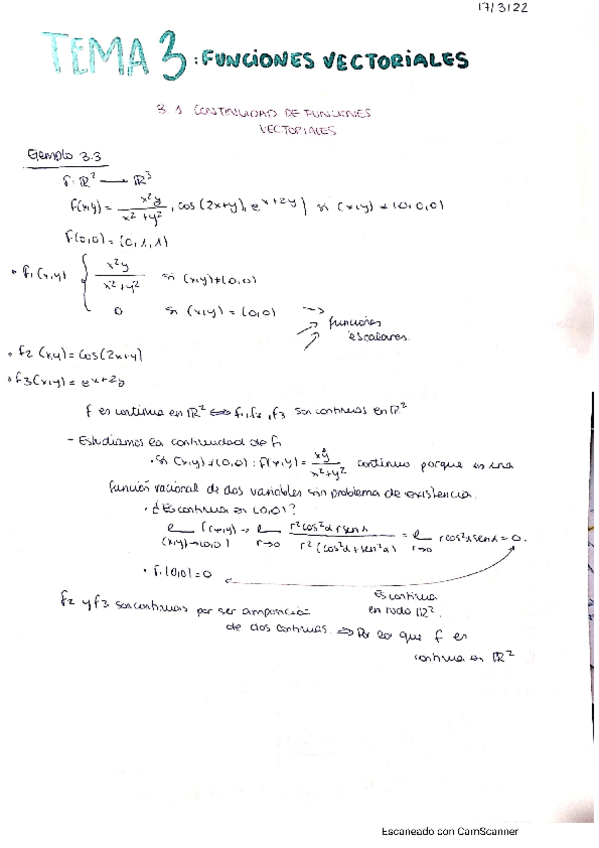 17/3/22
TEMA 3: FUNCIONES VECTORIALES
3.1 CONTINUIDAD DE FUNCIONES
VECTORIALES
Ejemplo 3.3
f: ℝ² → ℝ³
f(x,y) = x²y / x²+y², cos(2x+y), e^x+2y) si (x,y) ≠ (0,0,0)
f(0,0) = (0,1,1)
• f₁(x,y) { x²y / x²+y² si (x,y)≠(0,0)
0 si (x,y) = (0,0)
funciones
escalares.
• f2 (x,y) = cos(2x+y)
• f3(x,y) = e^x+2y
f es continua en ℝ² ⟺ f₁, f₂, f3 son continuas en ℝ²
- Estudiamos la continuidad de f₁
• Si (x,y) ≠ (0,0): f(x,y) = x²y / x²+y² continua porque es una
función racional de dos variables sin problema de existencia.
• ¿Es continua en (0,0)?
l (x,y)→(0,0) f(x,y) → l r→0 r²cos²α r senα / r²(cos²α + sen²α) = l r→0 r cos²α senα = 0.
• f₁(0,0) = 0
Es continua
en todo ℝ².
f2 y f3 son continuas por ser composición
de dos continuas. ⇒ Por lo que f es
continua en ℝ²
Escaneado con CamScanner